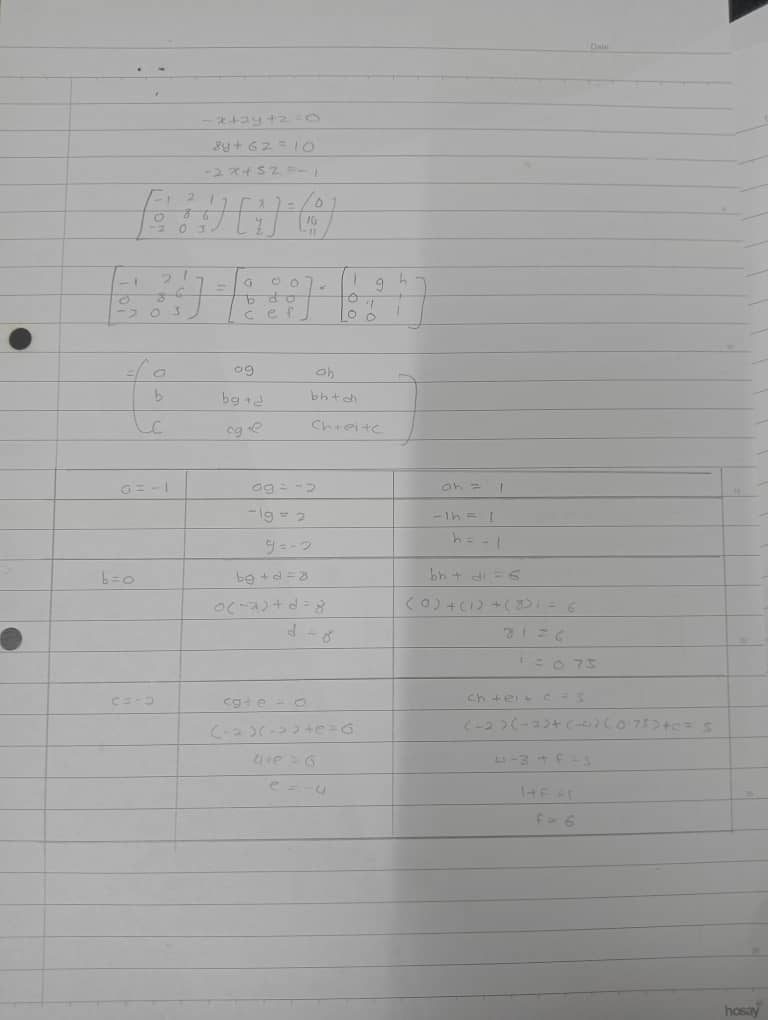 Date
-x+2y+z=0
8y+6z=10
-2x+5z=-1
[-1 2 1; 0 8 6; -2 0 5] [x; y; z] = [0; 10; -11]
[-1 2 1; 0 8 6; -2 0 5] = [a 0 0; b d 0; c e f] · [1 g h; 0 1 i; 0 0 1]
= (a ag ah; b bg+d bh+di; c cg+e ch+ei+c)
a=-1 ag=-2 ah=1
-1g=2 -1h=1
g=-2 h=-1
b=0 bg+d=8 bh+di=6
0(-2)+d=8 (0)+(1)+(8)i=6
d=8 8i=6
i=0.75
c=-2 cg+e=0 ch+ei+c=5
(-2)(-2)+e=0 (-2)(-2)+(-4)(0.75)+c=5
4+e=0 4-3+f=5
e=-4 1+f=5
f=6
hosay